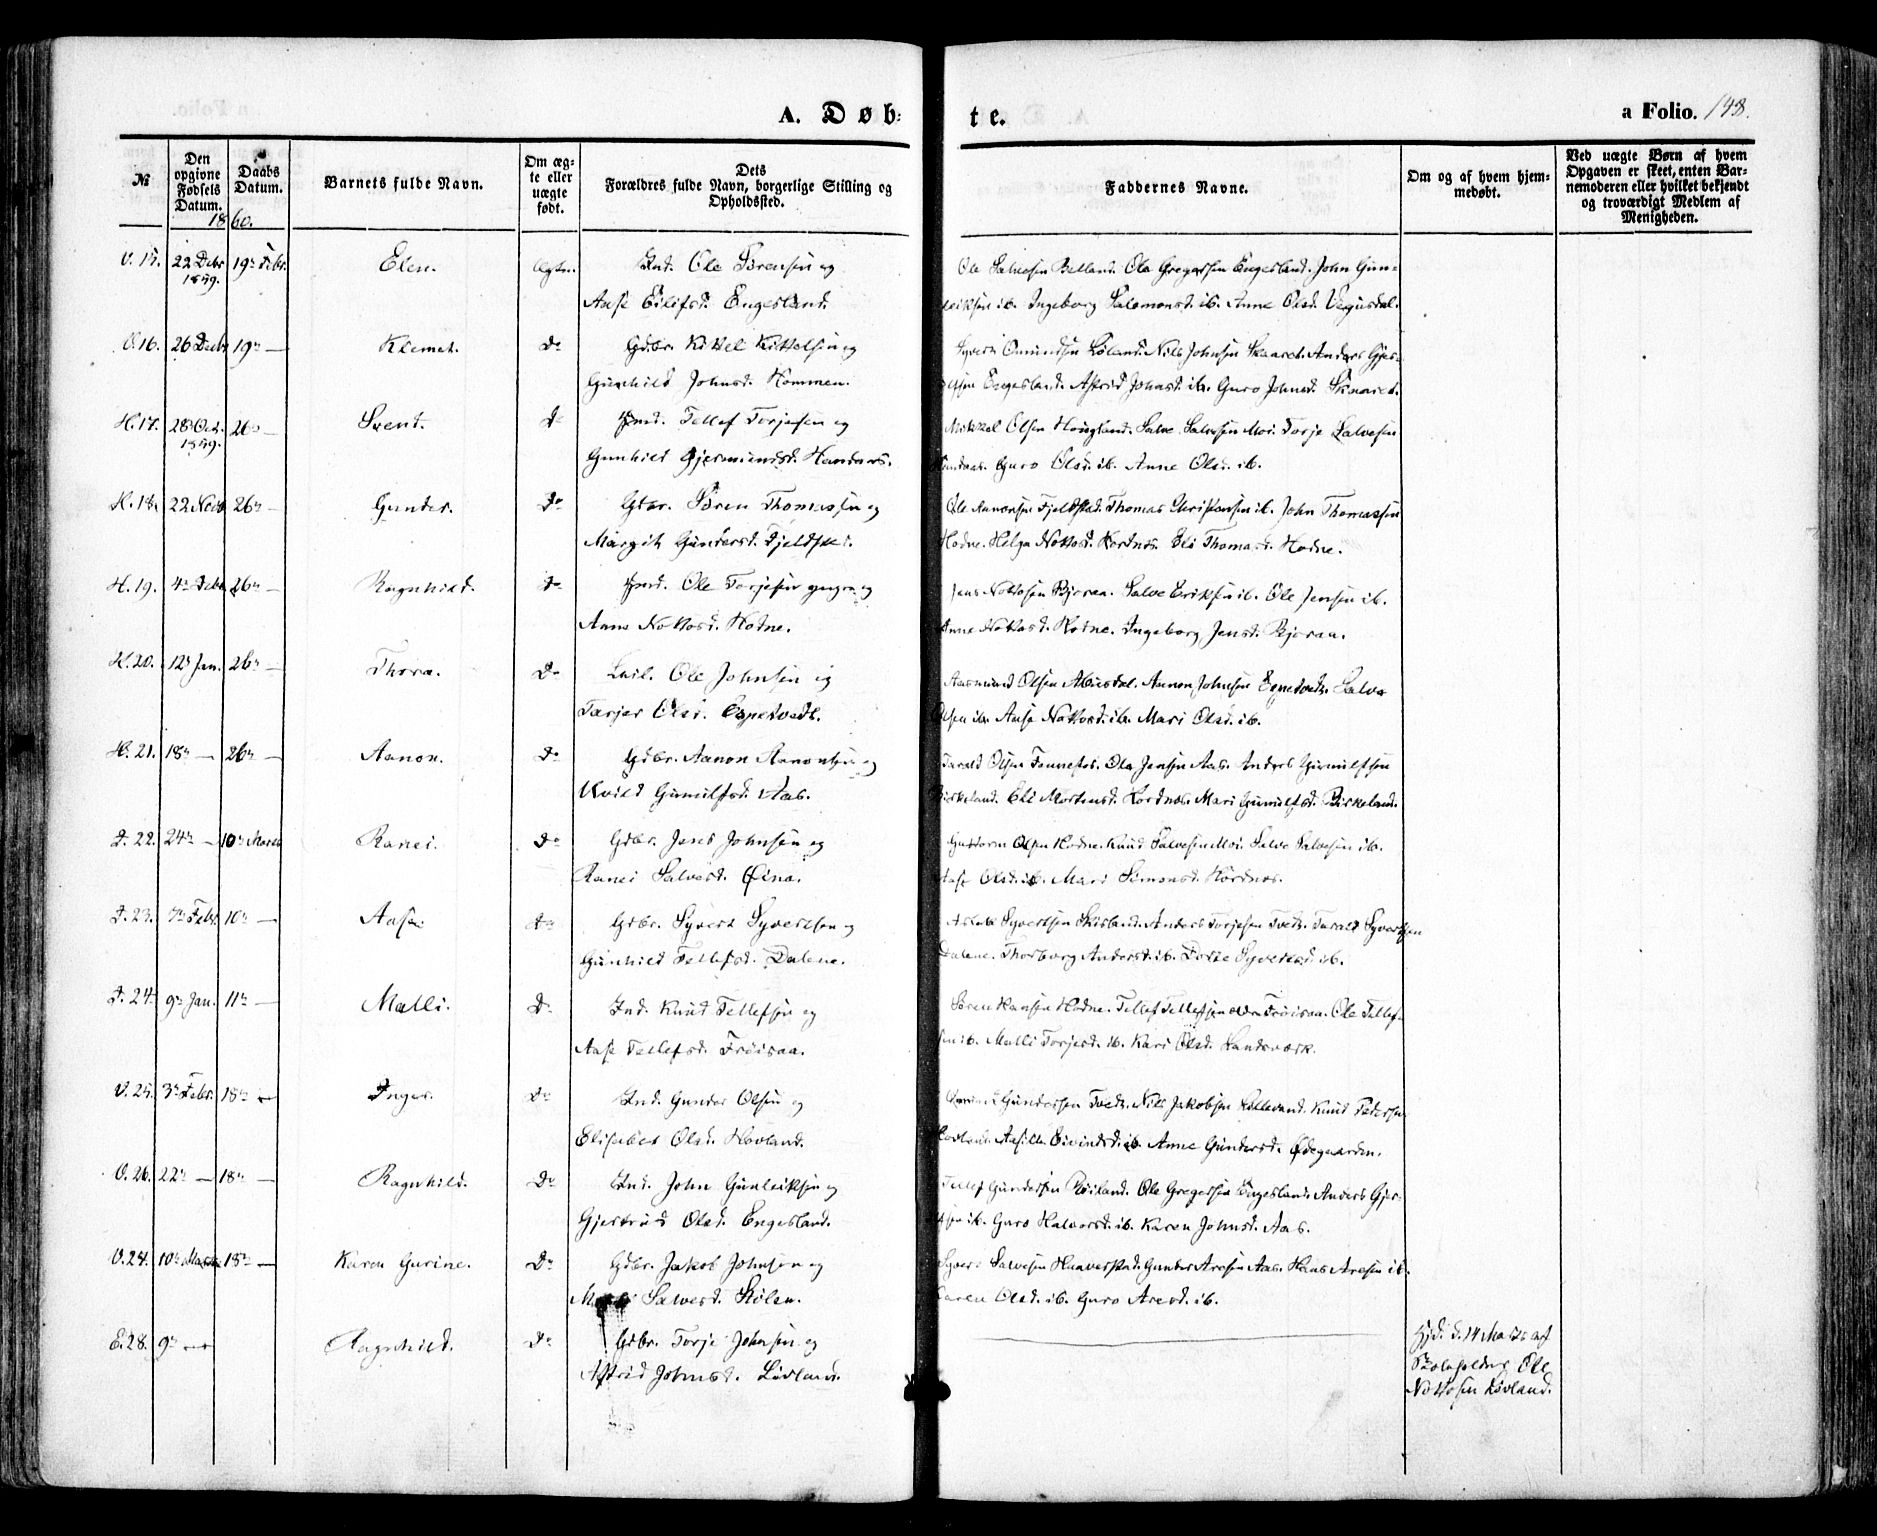 A. Døb-
te.
a Folio. 148.
№
Den opgivne Fødsels Datum.
Daabs Datum.
1860.
Barnets fulde Navn.
Om ægte eller uægte født.
Dets Forældres fulde Navn, borgerlige Stilling og Opholdssted.
Faddernes Navne.
Om og af hvem hjemmedøbt.
Ved uægte Børn af hvem Opgaven er skeet, enten Barnemoderen eller hvilket bekjendt og troværdigt Medlem af Menigheden.
V. 15. 22 Debr 1859. 19n Febr. Elen. Ægte. Ind. Ole Sørensen og
Aase Eilifsd. Engesland.
Ole Salvesen Belland. Ole Gregersen Engesland. John Gun-
leiksen ib. Ingeborg Salomonsd. ib. Anne Olsd. Vegusdal.
V. 16. 26 Debr 19n — Klemet. Do Gdbr. Kittel Kittelsen og
Gunhild Johnsd. Hommen.
Syvert Omundsen Løland. Nils Johnsen Skaaret. Anders Gjer-
Engesland. Astrid Johnsd. ib. Guro Johnsd. Skaaret.
H. 17. 28 Oct. 1859. 26n — Svend. Do Hmd. Tellef Torjesen og
Gunhild Gjermundsd. Handaas.
Mikkel Olsen Hougland. Salve Salvesen Moi. Torje Salvesen
Handaas. Guro Olsd. ib. Anne Olsd. ib.
H. 18. 22 Novb 26n — Gunder. Do Gdbr. Søren Thomassen og
Margit Gundersd. Fjeldstad.
Ole Aanonsen Fjeldstad. Thomas Christensen ib. John Thomassen
Hodne. Helga Nottosd. Hordnes. Eli Thomasd. Hodne.
H. 19. 4n Debr 26n — Ragnhild. Do Hmd. Ole Torjesen yngre og
Anne Nottosd. Hodne.
Jens Nottosen Bjoraa. Salve Eriksen ib. Ole Jensen ib.
Anne Nottosd. Hodne. Ingeborg Jensd. Bjoraa.
H. 20. 12n Jan. 26n — Thora. Do Leil. Ole Johnsen og
Tarjer Olsd. Egnetvedt.
Aasmund Olsen Aanon Johnsen Egnetvedt. Salve
Olsen ib. Aase Nottosd. ib. Mari Olsd. ib.
H. 21. 18n — 26n — Aanon. Do Gdbr. Aanon Aanonsen og
Gunulfsd. Aas.
Tarald Olsen Ole Jensen Aas. Anders Gunulfsen
Birkeland. Eli Mortensd. Hordnes. Mari Gunulfsd. Birkeland.
I. 22. 24n — 10n Marts Ranei. Do Gdbr. Jens Johnsen og
Ranei Salvesd. Øina.
Guttorm Olsen Hodne. Knud Salvesen Moi. Salve Salvesen ib.
Aase Olsd. ib. Mari Simonsd. Hordnes.
I. 23. 7n Febr. 10n — Aase. Do Gdbr. Syvert Syvertsen og
Gunhild Tellefsd. Dalene.
Syvertsen Skisland. Anders Torjesen Tvedt. Tarald Syvertsen
Dalene. Thorborg Andersd. ib. Syvertsd. ib.
I. 24. 9n Jan. 11n — Malli. Do Ind. Knud Tellefsen og
Aase Tellefsd. Frøisaa.
Søren Hansen Hodne. Tellef Tellefsen Frøisaa. Ole Tellef-
sen ib. Malli Torjesd. ib. Kari Olsd. Landsværk.
V. 25. 3n Febr. 18n — Inger. Do Ind. Gunder Olsen og
Elisabet Olsd. Hovland.
Gundersen Tvedt. Nils Jakobsen Kallevand. Knud Pedersen
Hovland. Eivindsd. ib. Anne Gundersd. Ødegaarden.
V. 26. 22n — 18n — Ragnhild. Do Ind. John Gunleiksen og
Gjertrud Olsd. Engesland.
Tellef Gundersen Røiland. Ole Gregersen Engesland. Anders Gjer-
sen ib. Guro Halvorsd. ib. Karen Johnsd. Aas.
V. 27. 10n Marts 18n — Karen Gurine. Do Gdbr. Jakob Johnsen og
Salvesd. Skølen.
Syvert Salvesen Haaverstad. Gunder Aresen Aas. Hans Aresen ib.
Karen Olsd. ib. Guro Aresd. ib.
E. 28. 9n — Ragnhild. Do Gdbr. Torje Johnsen og
Astrid Johnsd. Løvland.
Hjd. d. 14 Marts af
Skoleholder Ole
Nottosen Løvland.